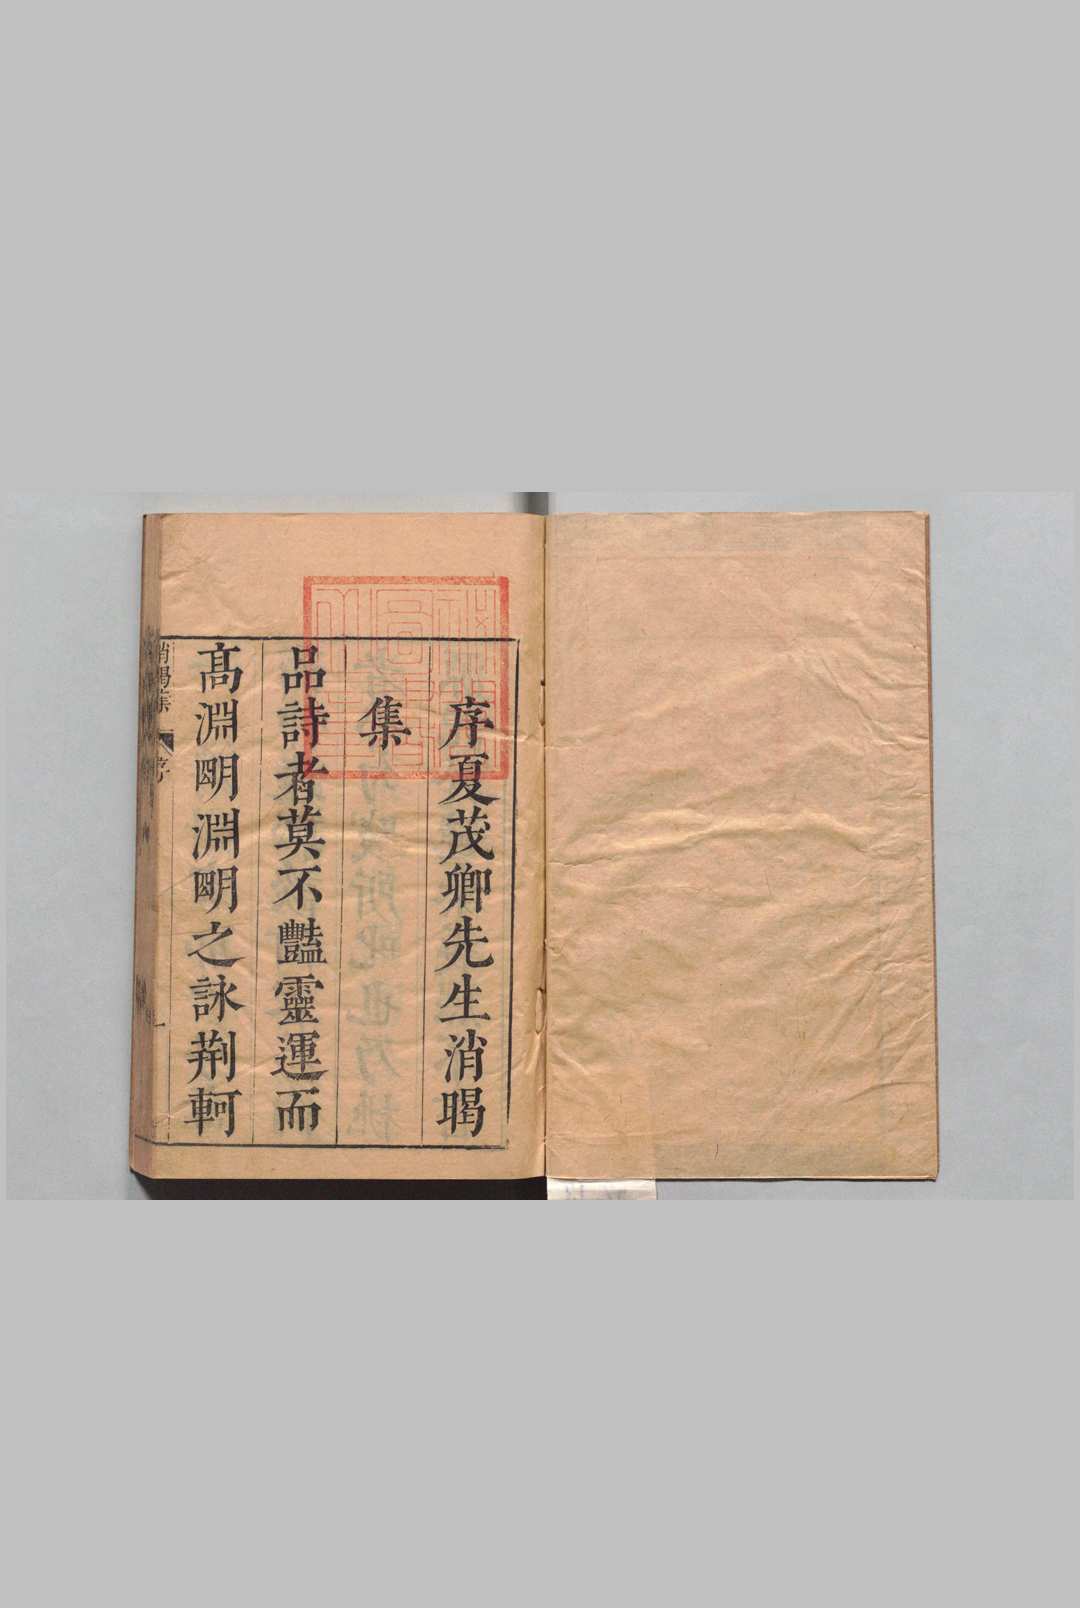 序夏茂卿先生消暍
集
品詩者莫不豔靈運而
高淵明淵明之詠荆軻
消暍集 序